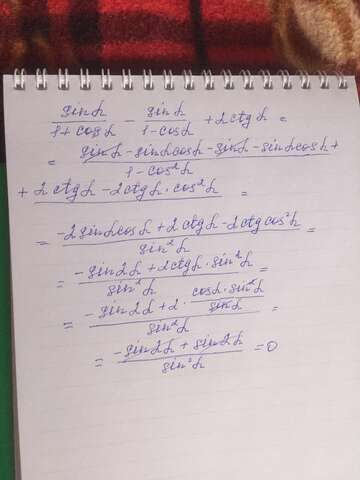 sinα/(1+cosα) - sinα/(1-cosα) + 2ctgα =
= (sinα - sinαcosα - sinα - sinαcosα +
+ 2ctgα - 2ctgα·cos²α)/(1-cos²α) =
= (-2sinαcosα + 2ctgα - 2ctgcos²α)/sin²α =
= (-sin2α + 2ctgα·sin²α)/sin²α =
= (-sin2α + 2·(cosα·sin²α)/sinα)/sin²α =
= (-sin2α + sin2α)/sin²α = 0